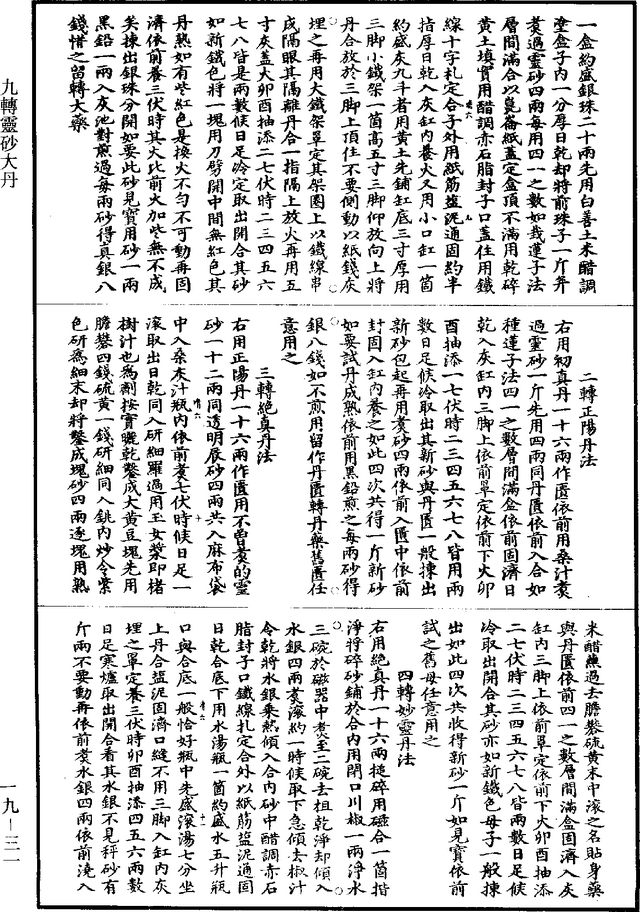 一盒約盛銀珠二十兩先用白善土米醋調
塗盒子內一分厚日乾却將前珠子一斤并
煑過靈砂四兩每用四一之數如栽蓮子法
層間滿合以崑崙紙蓋定盒頂不滿用乾碎
黃土填實用醋調赤石脂封子口蓋住用鐵
線十字札定合子外用紙筋鹽泥通固約半
指厚日乾入灰缸內養火又用小口缸一箇
約盛灰九斗者用黃土先鋪缸底三寸厚用
三脚小鐵架一箇高五寸三脚仰放向上將
丹合放於三脚上頂住不要側動以紙錢灰
埋之再用大鐵架罩定其架圈上以鐵線串
成隔眼其隔離丹合一指隔上放火再用五
寸灰蓋大卯酉抽添二七伏時二三四五六
七八皆是兩數候日足冷定取出開合其砂
如新鐵色將一塊用刀劈開中間無紅色其
丹熟如有些紅色是換火不勻不可動再固
濟依前養三伏時其火比前大加些無不成
矣揀出銀珠分開如要此砂見寶用砂一兩
黑鉛一兩入灰池對煎過每兩砂得真銀八
錢惜之留轉大藥
二轉正陽丹法
右用初真丹一十六兩作匱依前用桑汁煑
過靈砂一斤先用四兩同丹匱依前入合如
種蓮子法四一之數層間滿盒依前固濟日
乾入灰缸內三脚上依前罩定依前下火卯
酉抽添一七伏時二三四五六七八皆用兩
數日足候冷取出其新砂與丹匱一般揀出
新砂包起再用煑砂四兩依前入匱中依前
封固入缸內養之如此四次共得一斤新砂
如要試丹成熟依前用黑鉛煎之每兩砂得
銀八錢如不煎用留作丹匱轉丹藥舊匱任
意用之
三轉絕真丹法
右用正陽丹一十六兩作匱用不曾煑的靈
砂一十二兩同透明辰砂四兩共入麻布袋
中入桑灰汁瓶內依前煑七伏時候日足一
滾取出日乾同入研細羅過用玉女漿即楮
樹汁也為劑按實曬乾鑿成大黃豆塊先用
膽礬四錢硫黃一錢研細同入銚內炒令紫
色研為細末却將鑿成塊砂四兩逐塊用熟
米醋蘸過去膽礬硫黃末中滾之名貼身藥
與丹匱依前四一之數層間滿盒固濟入灰
缸內三脚上依前罩定依前下火卯酉抽添
二七伏時二三四五六七八皆兩數日足候
冷取出開合其砂亦如新鐵色母子一般揀
出如此四次共收得新砂一斤如見寶依前
試之舊母任意用之
四轉妙靈丹法
右用絕真丹一十六兩搥碎用磁合一箇揩
淨將碎砂鋪於合內用閉口川椒一兩淨水
三碗於磁器中煑至二碗去柤乾淨却傾入
水銀四兩煑滾約一時候取下急傾去椒汁
令乾將水銀乘熱傾入合內砂中醋調赤石
脂封子口鐵線扎定合外以紙筋鹽泥通固
日乾合底下用水湯瓶一箇約盛水五升瓶
口與合底一般恰好瓶中先盛滾湯七分坐
上丹合鹽泥固濟口縫不用三脚入缸內灰
埋之罩定養三伏時卯酉抽添四五六兩數
日足寒爐取出開合看其水銀不見秤砂有
斤兩不要動再依前煑水銀四兩依前澆入
九轉靈砂大丹
一九－三一